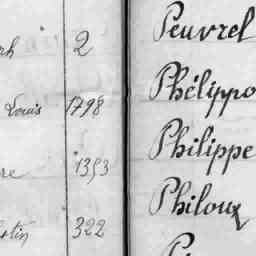 2
Louis 1798
1353
322
Peuvrel
Phélippo
Philippe
Philoux